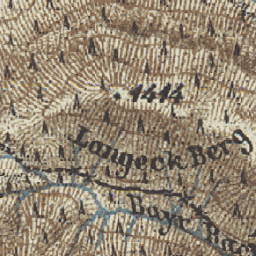 1414
Langeck Berg
Bayr.